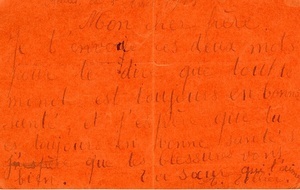 Mon cher frère
Je t'envoie ces deux mots
pour te dire que tout le
monde est toujours en bonne
santé et j'espère que tu
es toujours en bonne santé et
que tes blessures vont
bien. Ta sœur qui